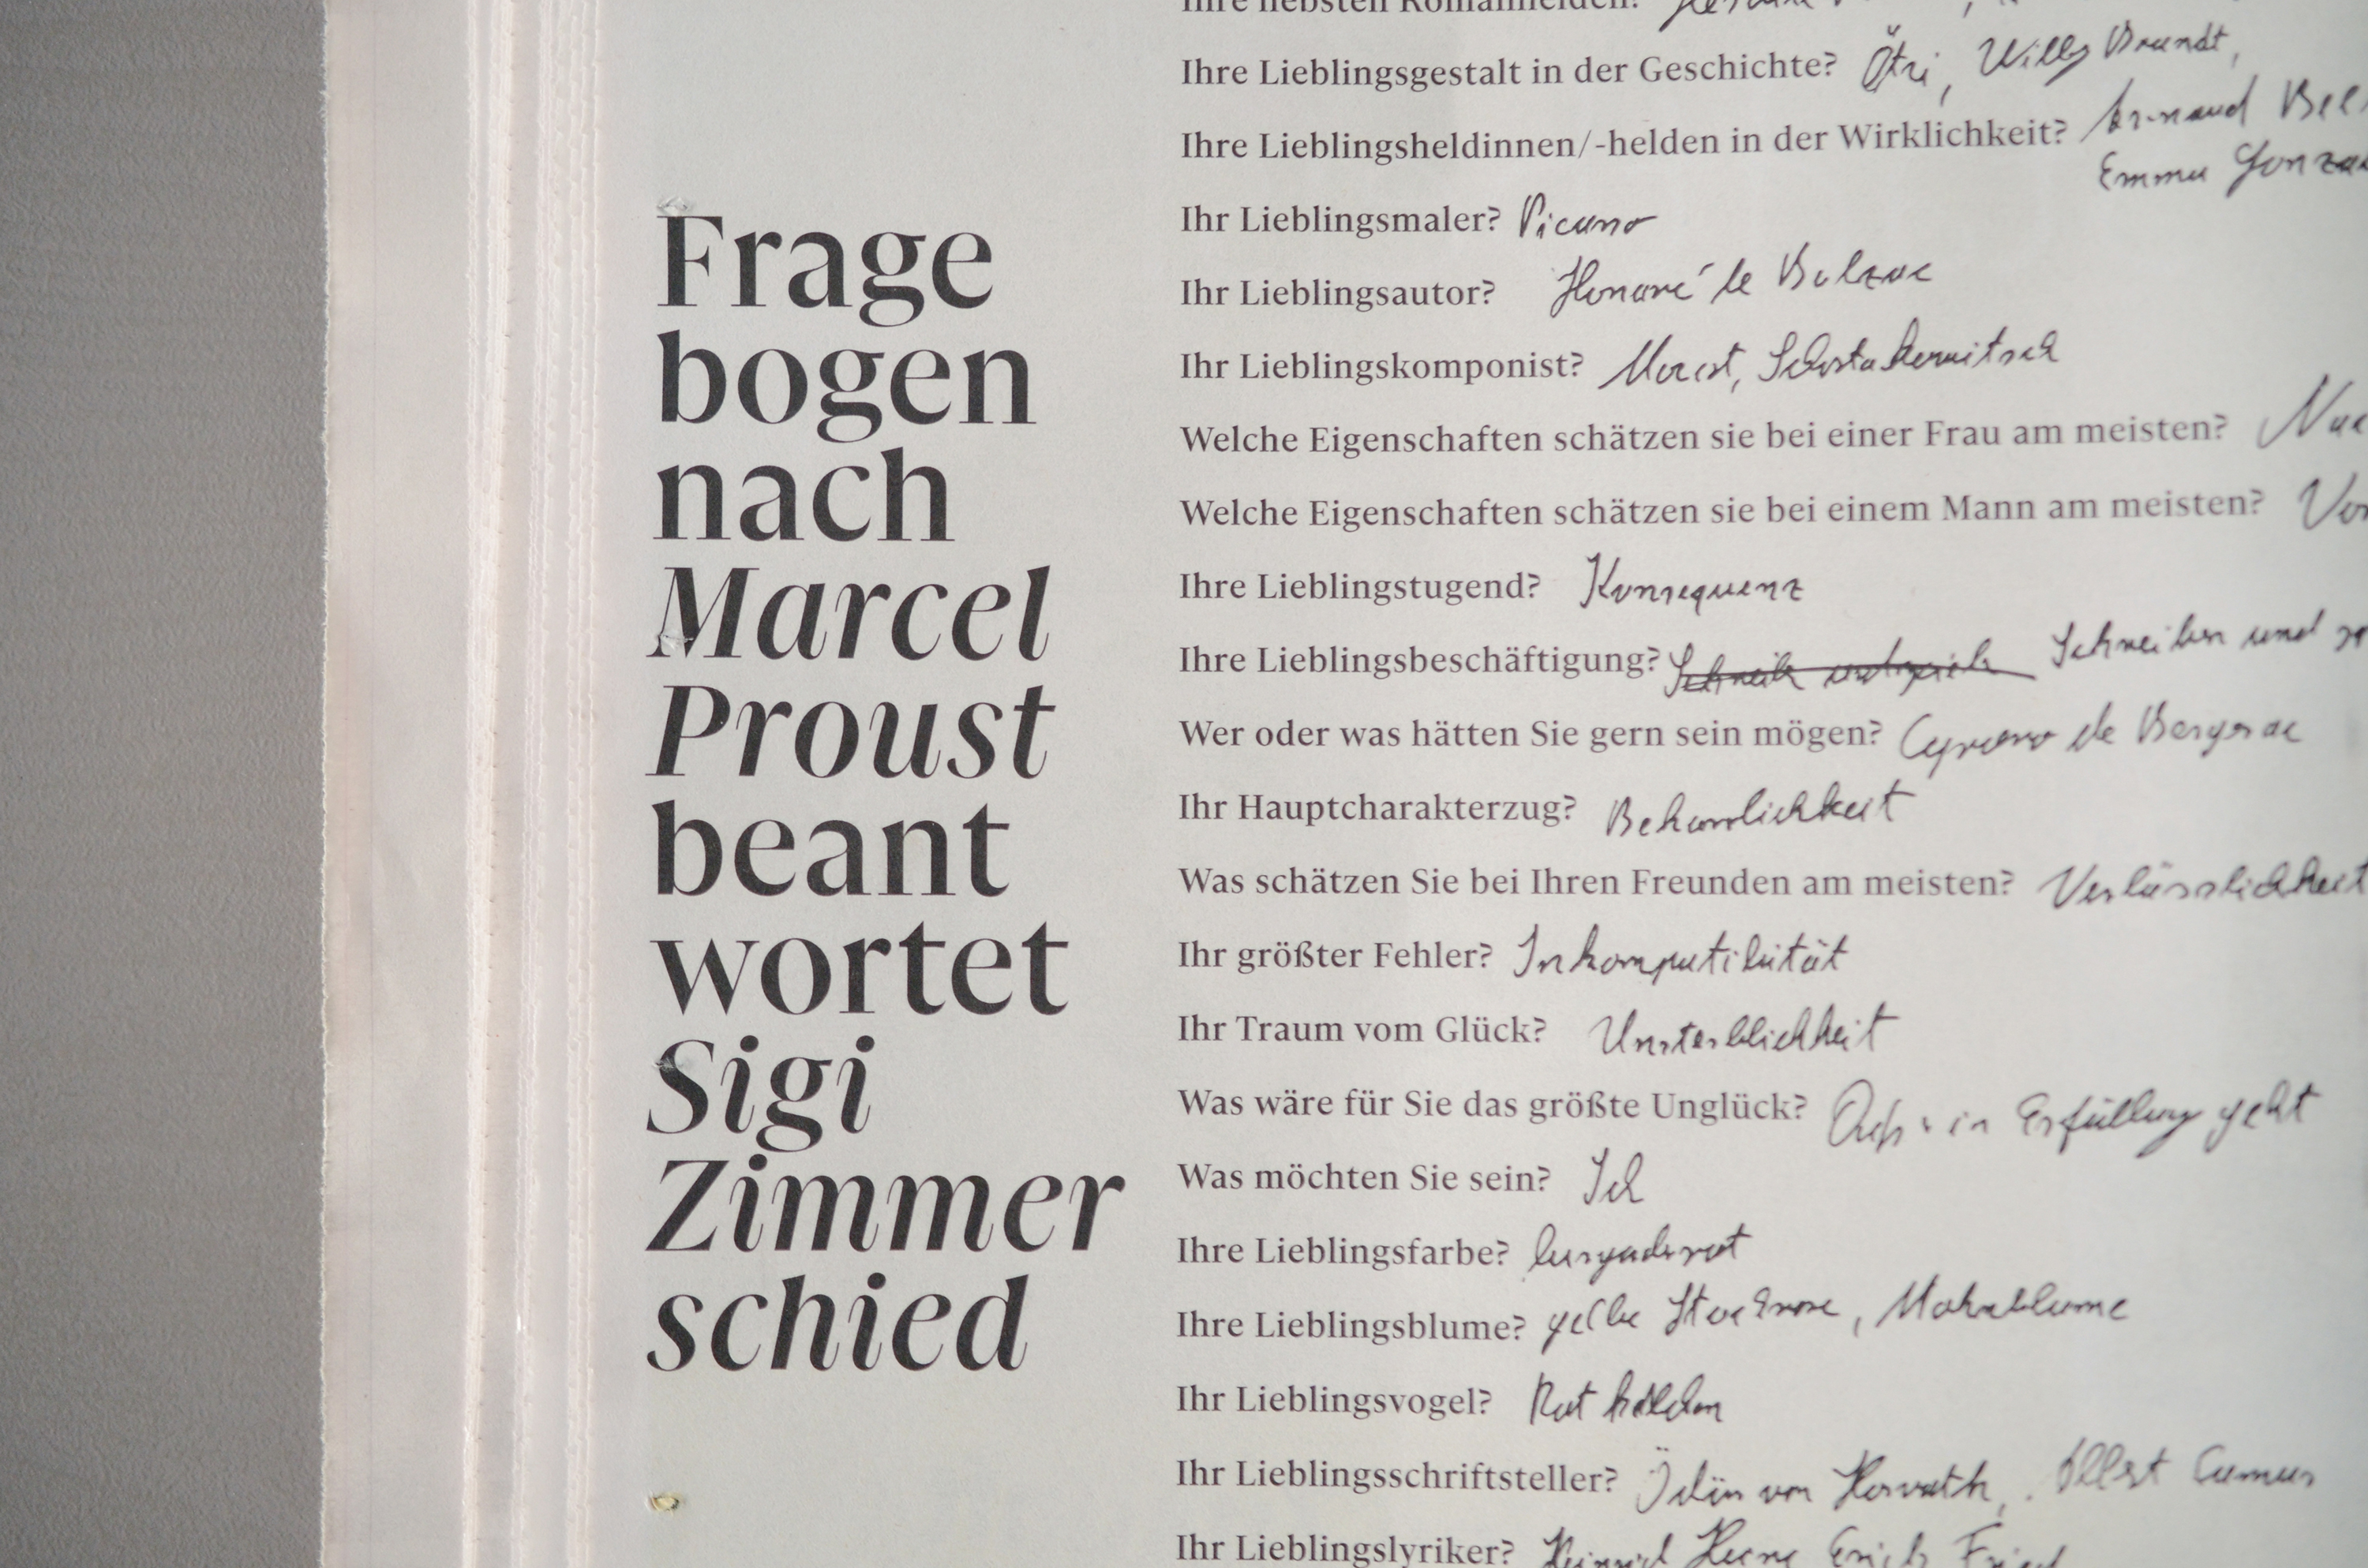 Frage
bogen
nach
Marcel
Proust
beant
wortet
Sigi
Zimmer
schied
Ihre liebsten Romanhelden?
Ihre Lieblingsgestalt in der Geschichte? Ötzi, Willy Brandt,
Ihre Lieblingsheldinnen/-helden in der Wirklichkeit?
Emma
Ihr Lieblingsmaler? Picasso
Ihr Lieblingsautor? Honoré de Balzac
Ihr Lieblingskomponist? Mozart, Schostakowitsch
Welche Eigenschaften schätzen sie bei einer Frau am meisten?
Welche Eigenschaften schätzen sie bei einem Mann am meisten?
Ihre Lieblingstugend? Konsequenz
Ihre Lieblingsbeschäftigung? Schreiben und
Wer oder was hätten Sie gern sein mögen? Cyrano de Bergerac
Ihr Hauptcharakterzug? Beharrlichkeit
Was schätzen Sie bei Ihren Freunden am meisten? Verlässlichkeit
Ihr größter Fehler? Inkompatibilität
Ihr Traum vom Glück? Unsterblichkeit
Was wäre für Sie das größte Unglück? in Erfüllung geht
Was möchten Sie sein? Ich
Ihre Lieblingsfarbe?
Ihre Lieblingsblume? gelbe Stockrose, Mohnblume
Ihr Lieblingsvogel?
Ihr Lieblingsschriftsteller? Ödön von Horvath, Albert Camus
Ihr Lieblingslyriker? Heinrich Heine Erich Fried